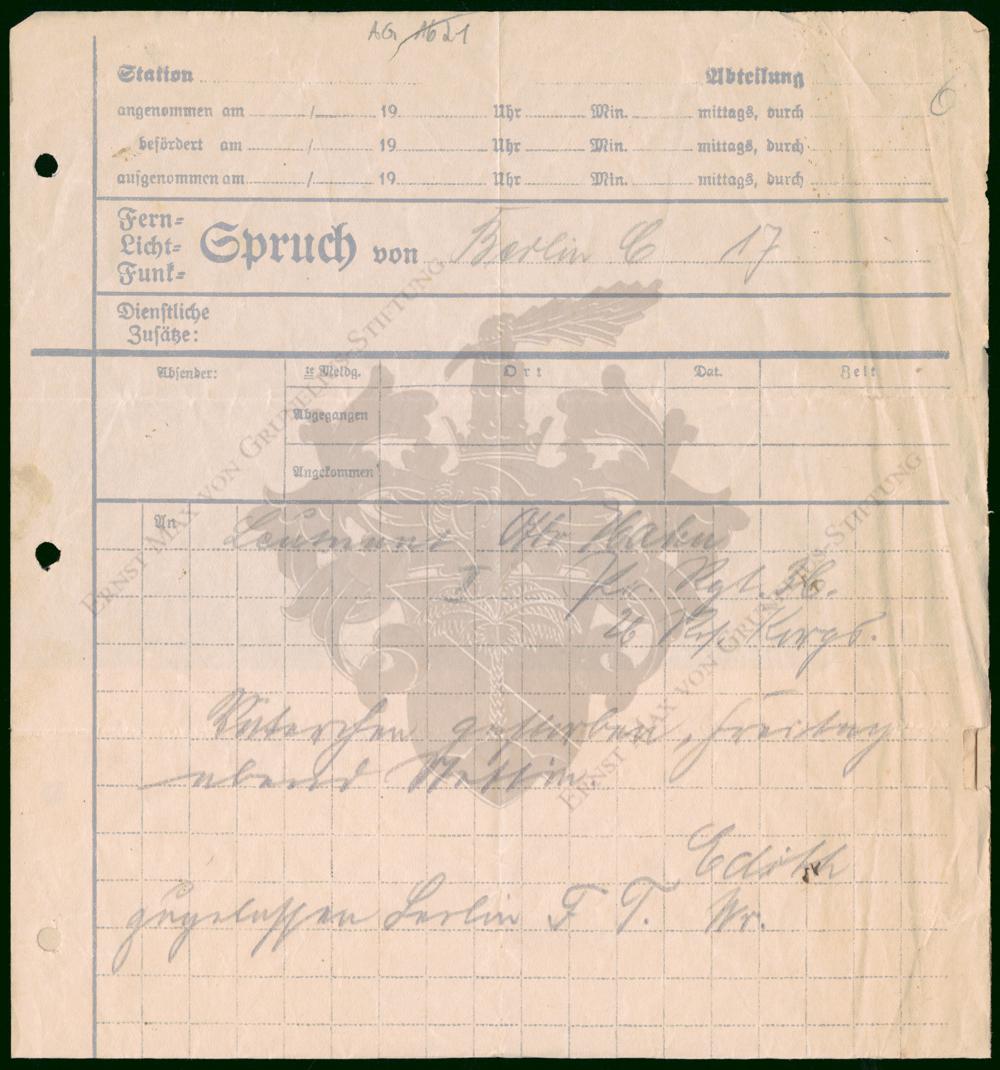 AG 1621
Station Abteilung
6
angenommen am / 19 Uhr Min. mittags, durch
befördert am / 19 Uhr Min. mittags, durch
aufgenommen am / 19 Uhr Min. mittags, durch
Fern=
Licht=
Funk=
Spruch von Berlin C 17
Dienstliche
Zusätze:
Absender: te Meldg. Ort Dat. Zeit
Abgegangen
Angekommen
An Leutnant Otto Hahn
Pi. Rgt. 36.
26 Res. Korps.
Väterchen gestorben, Freitag
abend Stettin.
Edith
zugelassen Berlin F T. Nr.
ERNST MAX VON GRUNELIUS-STIFTUNG
ERNST MAX VON GRUNELIUS-STIFTUNG